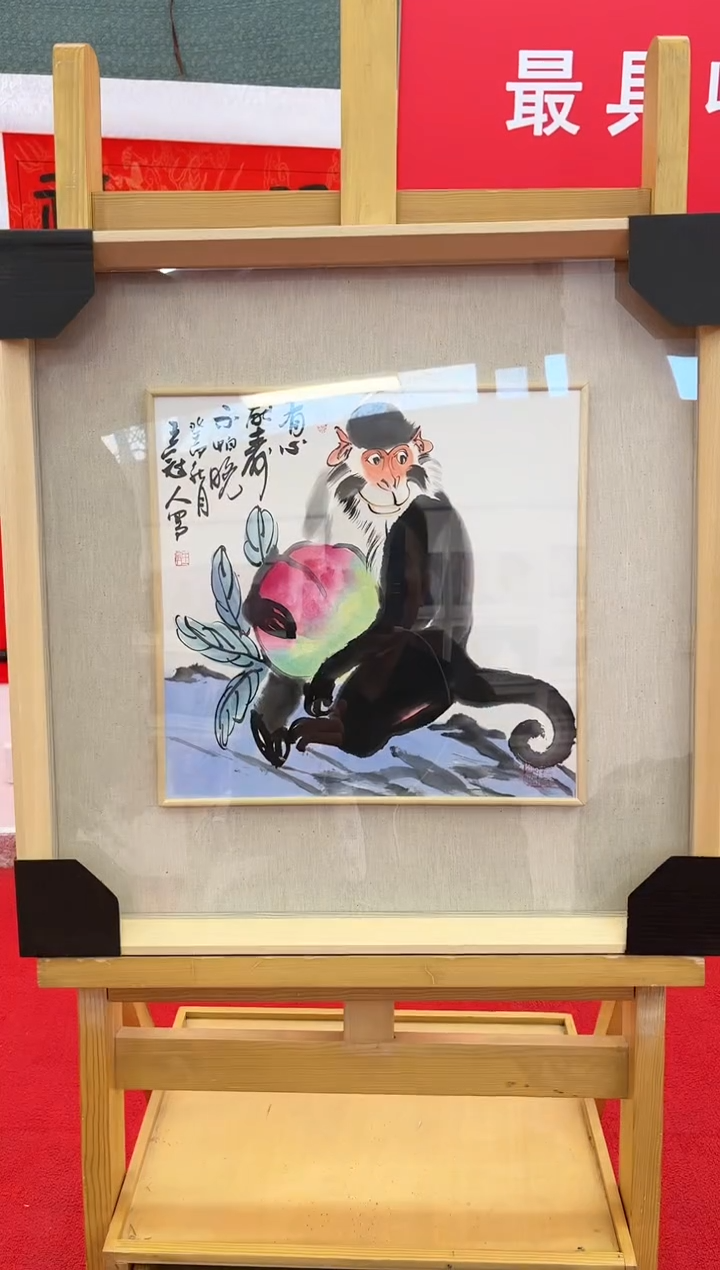 最具
有心
献寿
不怕晚
癸卯秋月
王冠人写